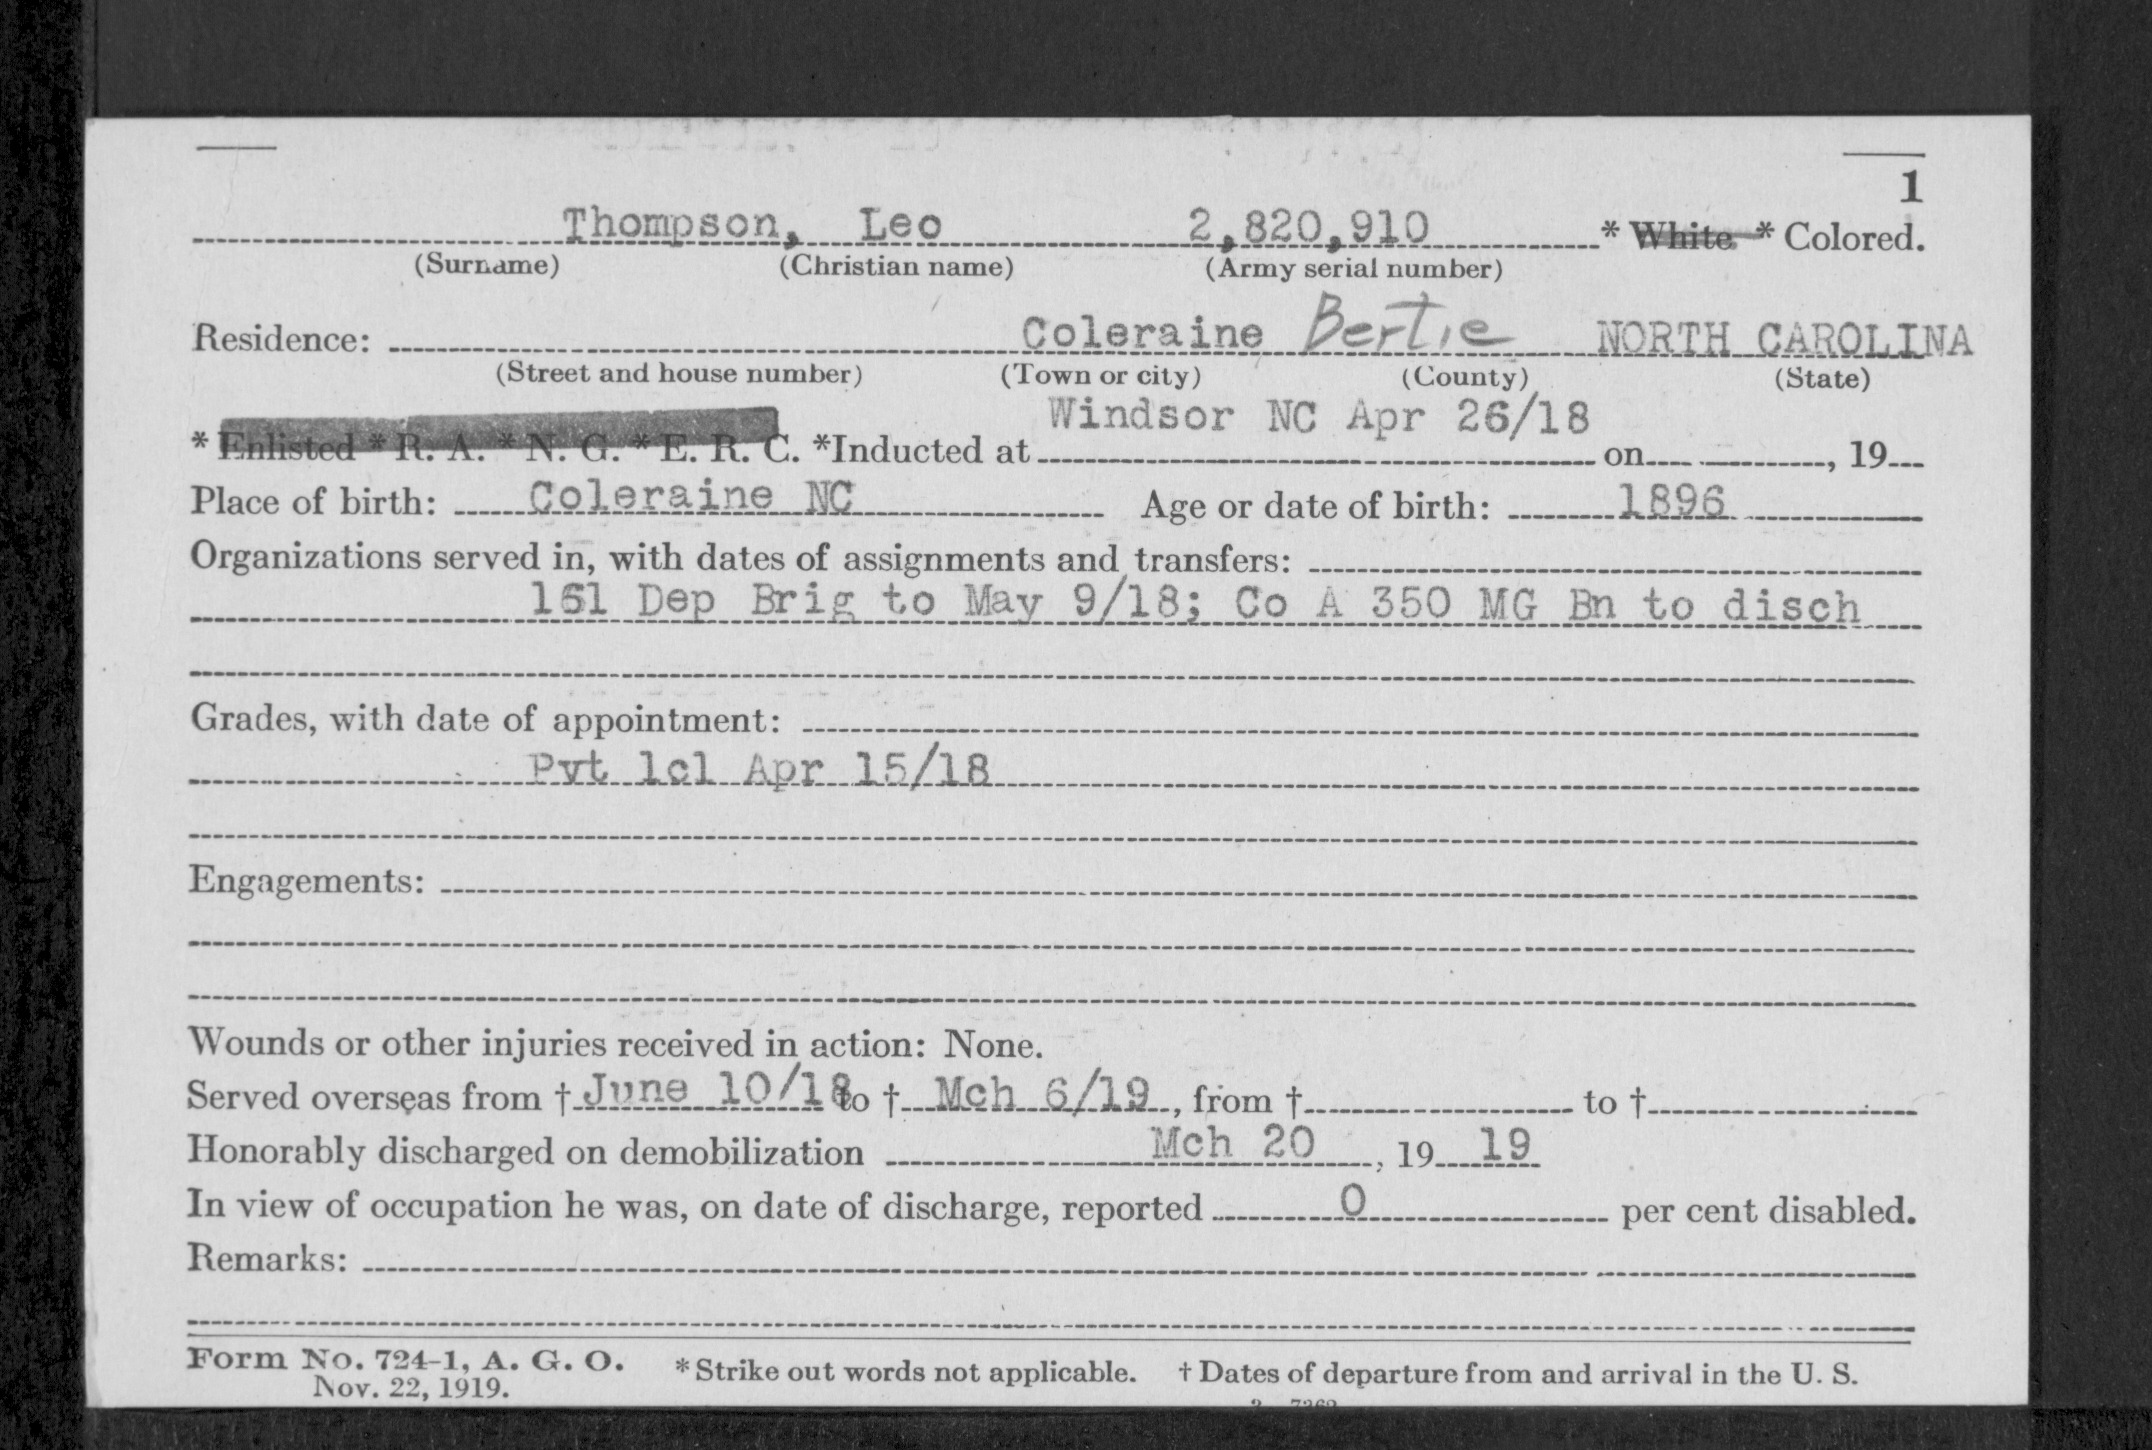 1
Thompson, Leo 2,820,910 * White * Colored.
(Surname) (Christian name) (Army serial number)
Residence: Coleraine Bertie NORTH CAROLINA
(Street and house number) (Town or city) (County) (State)
Windsor NC Apr 26/18
* Enlisted * R. A. * N. G. * E. R. C. *Inducted at on , 19
Place of birth: Coleraine NC Age or date of birth: 1896
Organizations served in, with dates of assignments and transfers:
161 Dep Brig to May 9/18; Co A 350 MG Bn to disch
Grades, with date of appointment:
Pvt 1cl Apr 15/18
Engagements:
Wounds or other injuries received in action: None.
Served overseas from † June 10/18 to † Mch 6/19, from † to †
Honorably discharged on demobilization Mch 20, 19 19
In view of occupation he was, on date of discharge, reported 0 per cent disabled.
Remarks:
Form No. 724-1, A. G. O. * Strike out words not applicable. † Dates of departure from and arrival in the U. S.
Nov. 22, 1919.